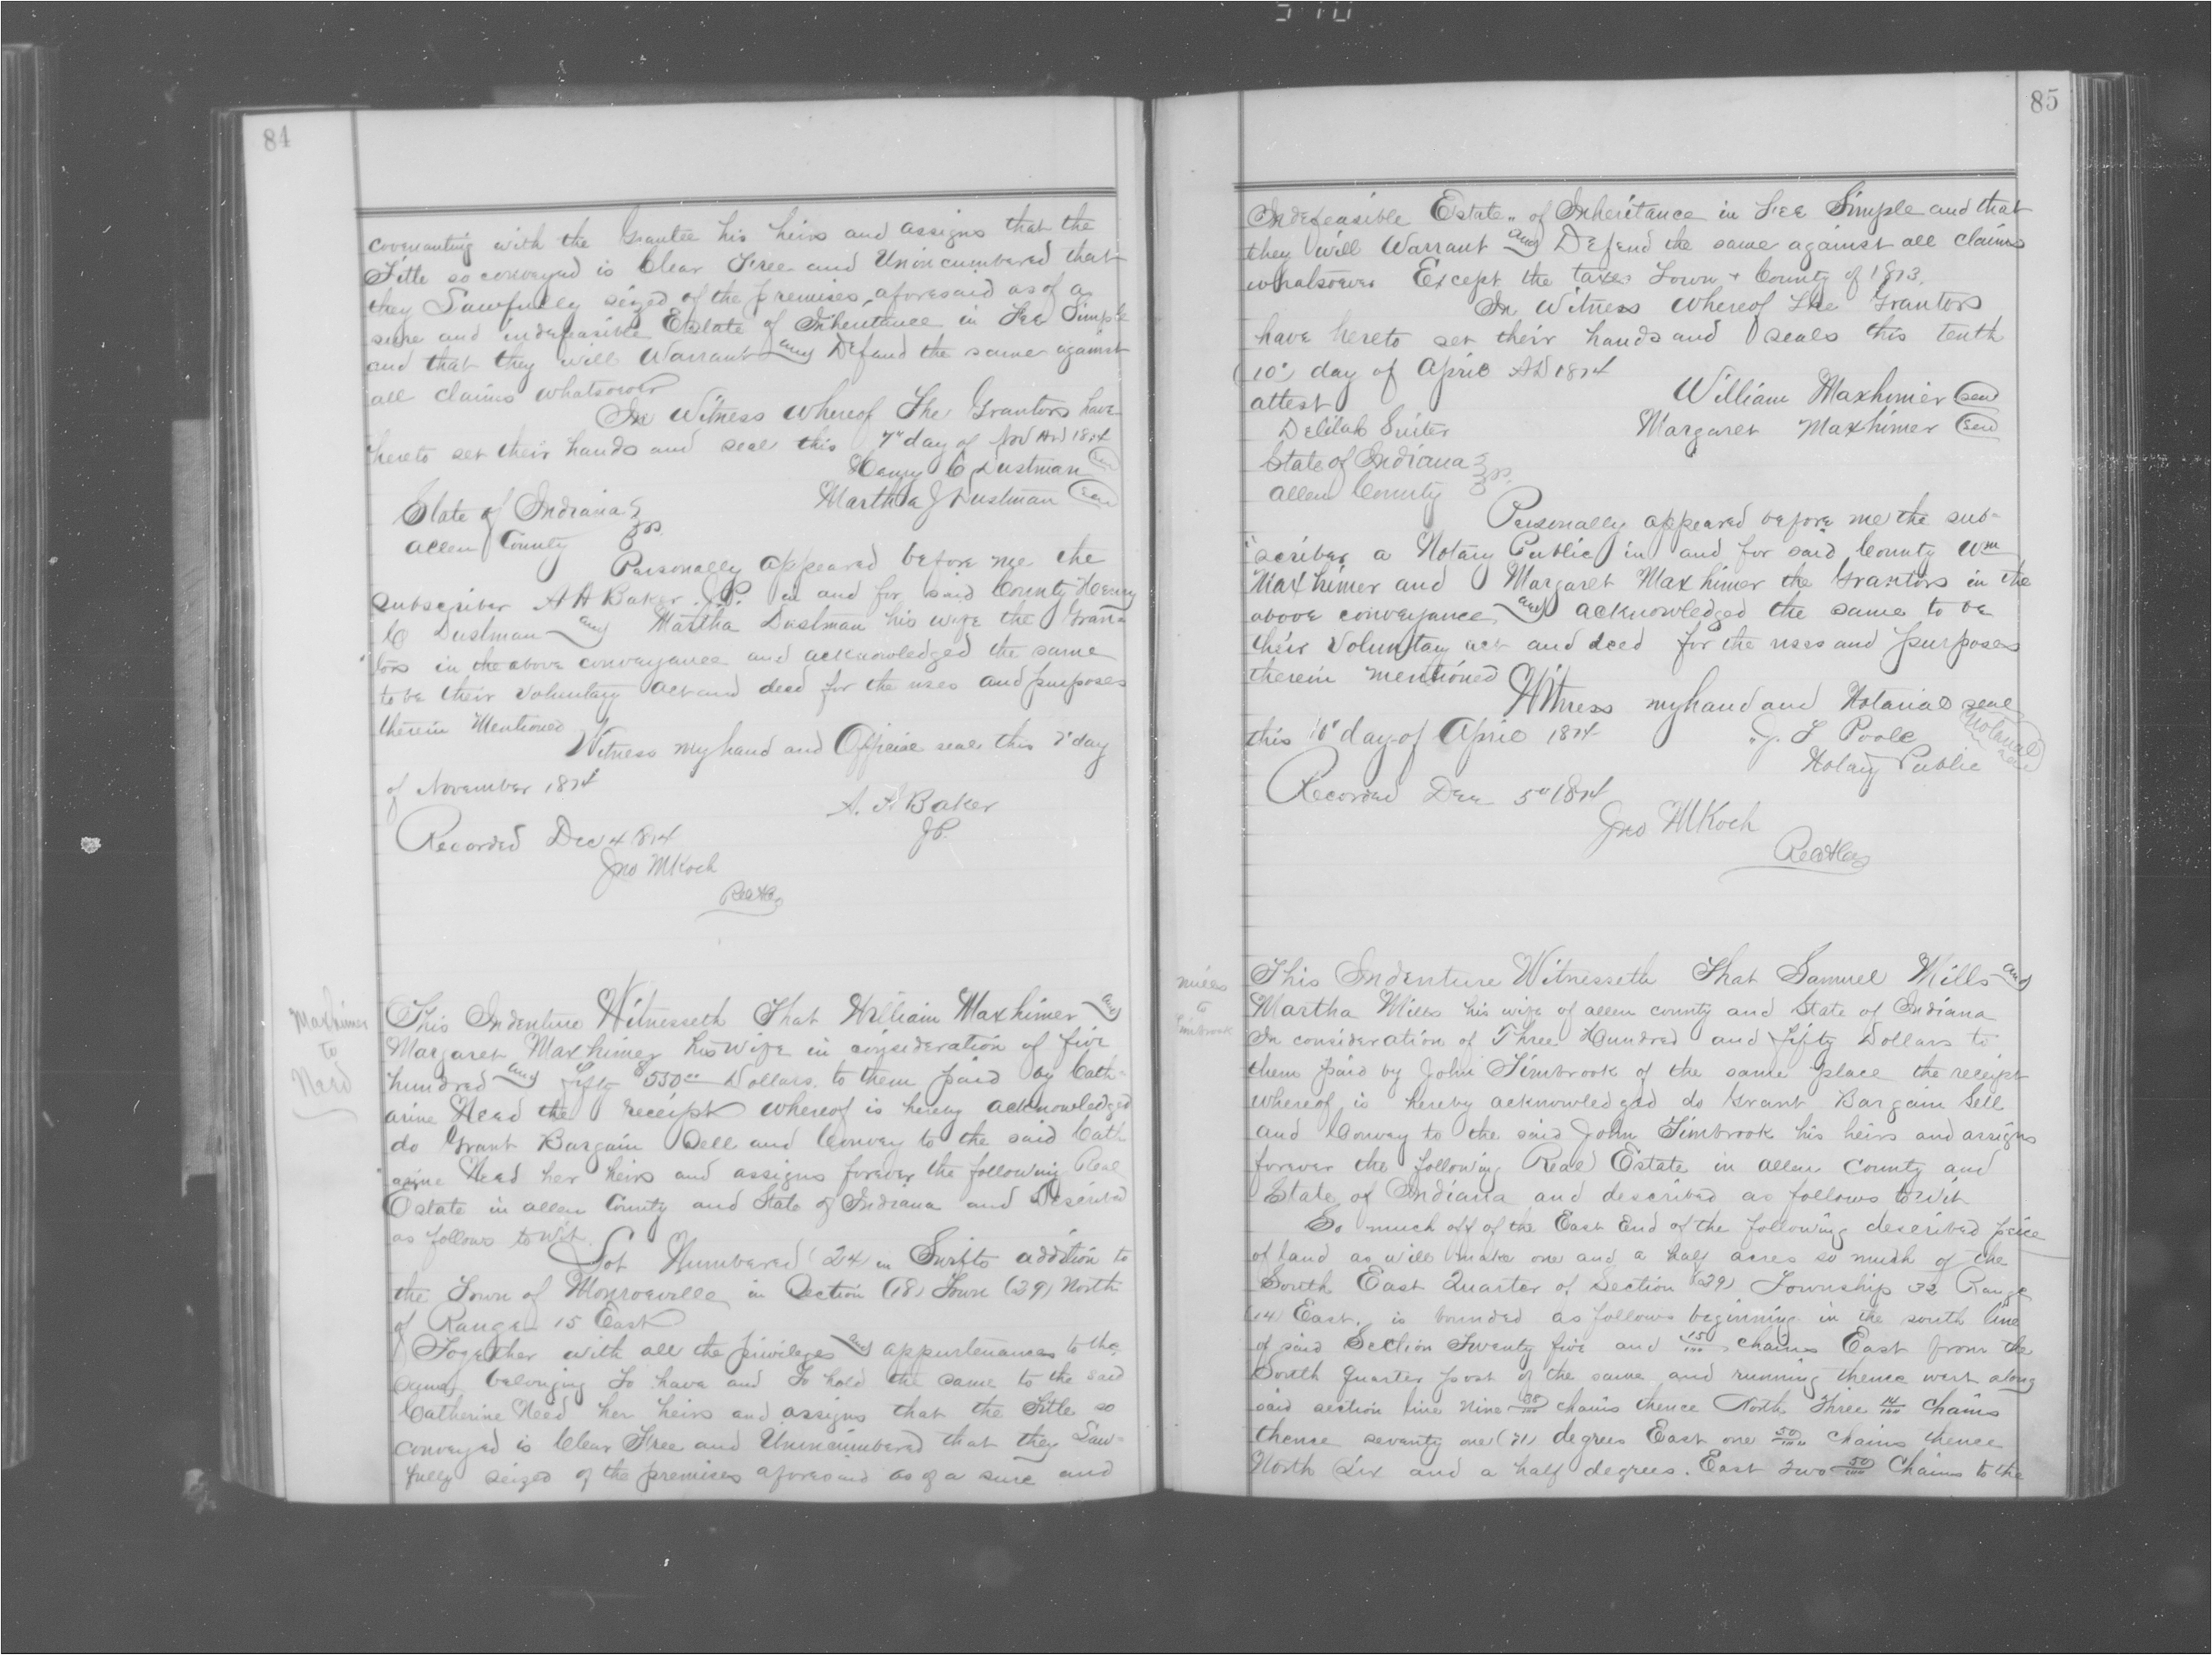 84
covenanting with the Grantee his heirs and assigns that the
Title so conveyed is Clear Free and Unincumbered that
they Lawfully seized of the premises aforesaid as of a
sure and indefeasible Estate of Inheritance in Fee Simple
and that they will Warrant and Defend the same against
all claims whatsoever
In Witness whereof The Grantors have
hereto set their hands and seal this 7" day of Nov AD 1874
Henry C Dustman Seal
Martha J Dustman Seal
State of Indiana
Allen County ss
Personally appeared before me the
subscriber A H Baker J.P. in and for said County Henry
C Dustman and Martha Dustman his wife the Gran-
"tors in the above conveyance and acknowledged the same
to be their voluntary act and deed for the uses and purposes
therein Mentioned
Witness my hand and Official seal this 7" day
of November 1874
A. H. Baker
J P.
Recorded Dec 4 1874
Jno M Koch
Maxhimer
to
This Indenture Witnesseth That William Maxhimer and
Margaret Maxhimer his wife in consideration of five
hundred and fifty $550.00 Dollars to them paid by Cath-
arine Need the receipt whereof is hereby acknowledged
do Grant Bargain Sell and Convey to the said Cath
"arine Need her heirs and assigns forever the following Real
Estate in Allen County and State of Indiana and Described
as follows to wit.
Lot Numbered (24) in Swifts addition to
the Town of Monroeville in Section (18) Town (29) North
of Range 15 East
Together with all the privileges and appurtenances to the
same belonging To have and To hold the same to the said
Catherine Need her heirs and assigns that the Title so
conveyed is Clear Free and Unincumbered that they Law-
fully seized of the premises aforesaid as of a sure and
85
Indefeasible Estate of Inheritance in Fee Simple and that
they will Warrant and Defend the same against all claims
whatsoever Except the taxes Town + County of 1873.
In Witness Whereof the Grantors
have hereto set their hands and seals this tenth
(10") day of April AD 1874
attest
William Maxhimer Seal
Delilah Suiter
Margaret Maxhimer Seal
State of Indiana
Allen County ss.
Personally appeared before me the sub-
"scriber a Notary Public in and for said County Wm
Maxhimer and Margaret Maxhimer the Grantors in the
above conveyance and acknowledged the same to be
their Voluntary act and deed for the uses and purposes
therein mentioned
Witness my hand and Notarial seal
this 10" day of April 1874
J. L Poole Notarial Seal
Notary Public
Recorded Dec 5" 1874
Jno M Koch
Mills
to
Timbrook
This Indenture Witnesseth That Samuel Mills and
Martha Mills his wife of Allen county and State of Indiana
In consideration of Three Hundred and fifty Dollars to
them paid by John Timbrook of the same place the receipt
whereof is hereby acknowledged do Grant Bargain Sell
and Convey to the said John Timbrook his heirs and assigns
forever the following Real Estate in Allen County and
State of Indiana and described as follows to wit
So much off of the East End of the following described peice
of land as will make one and a half acres so much of the
South East Quarter of Section (29) Township 32 Range
(14) East. is bounded as follows beginning in the south line
of said Section Twenty five and 15/100 chains East from the
South quarter post of the same and running thence west along
said section line Nine 38/100 chains thence North Three 14/100 chains
thence seventy one (71) degrees East one 50/100 chains thence
North Six and a half degrees. East two 50/100 Chains to the